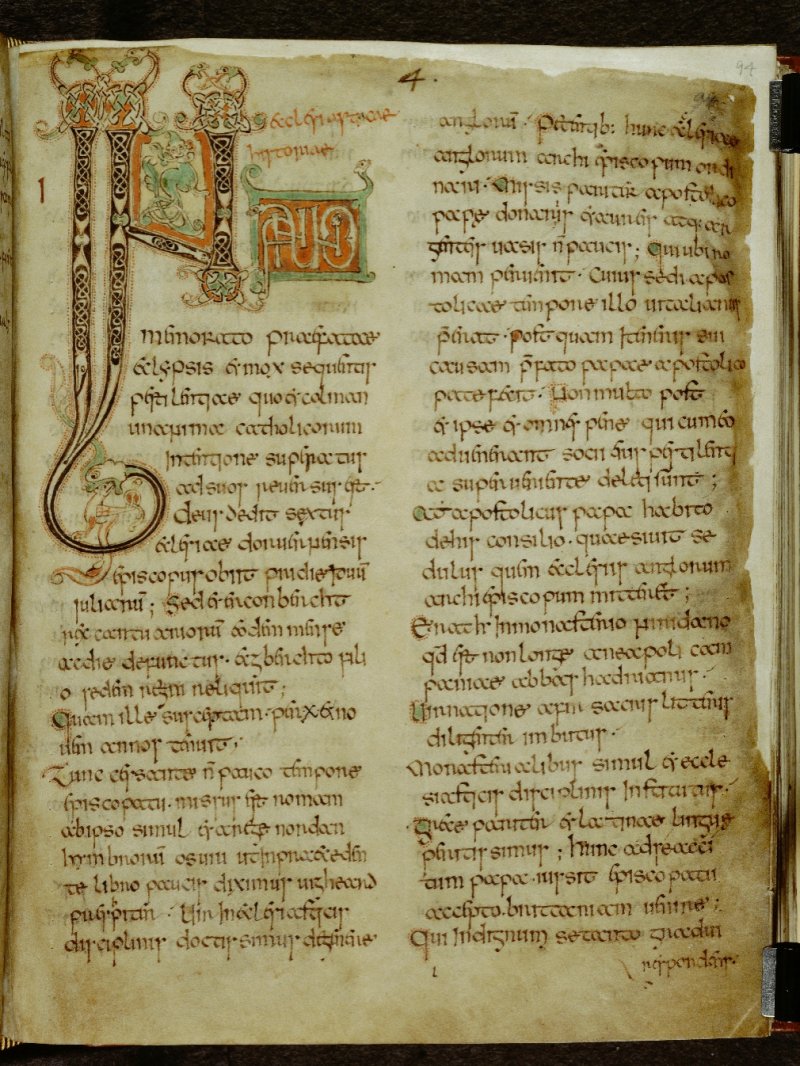 94
4.
ecclesiasticae
historiae
I
ANNO
memorato praefatae
eclypsis et mox sequentis
pestilentiae quo et colman
unanima catholicorum
intentione superatus
ad suos reuersus est.
deus dedit sextus
episcopus obiit pridie iduum
iuliarum; Sed et erconbercht
rex cantuariorum eodem mense
ac die defunctus. ecgberchto fili
o sedem regni reliquit;
Quam ille susceptam. per
uem annos tenuit;
Tunc cessante n pauco tempore
episcopatu. missus est romam
ab ipso simul et a rege nordan
hymbrorum osuiu ut in praeceden
te libro paucis diximus uigheard
presbiter. Uir in ecclesiasticis
disciplinis doctissimus de genere
anglorum. petentib: hunc ecclesiae
anglorum archiepiscopum ordi
nari. missis pariter apostolico
papae donariis et aureis atq: ar
genteis uasis n paucis; Qui ubi ro
mam peruenit. Cuius sedi apos
tolicae tempore illo uitalianus
praeerat. postquam itineris sui
causam praefato papae apostolico
patefecit. Non multo post
et ipse et omnes pene qui cum eo
aduenerant socii eius pestilenti
a superueniente deleti sunt;
At apostolicus papa habito
de his consilio. quaesiuit se
dulus quem ecclesiis anglorum
archiepiscopum mitteret;
Erat h in monasterio niridano
qd est non longe a neapoli cam
paniae abbas hadrianus.
Uir natione afir sacris litteris
diligenter imbutus.
Monasterialibus simul et eccle
siasticis disciplinis institutus.
Grece pariter et latinae lingue
peritissimus; hunc ad se acci
tum papa. iussit episcopatu
accepto. brittaniam uenire;
Qui indignum se tanto gradui
respondens.